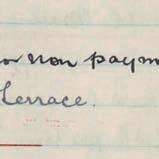 non paym
Terrace.